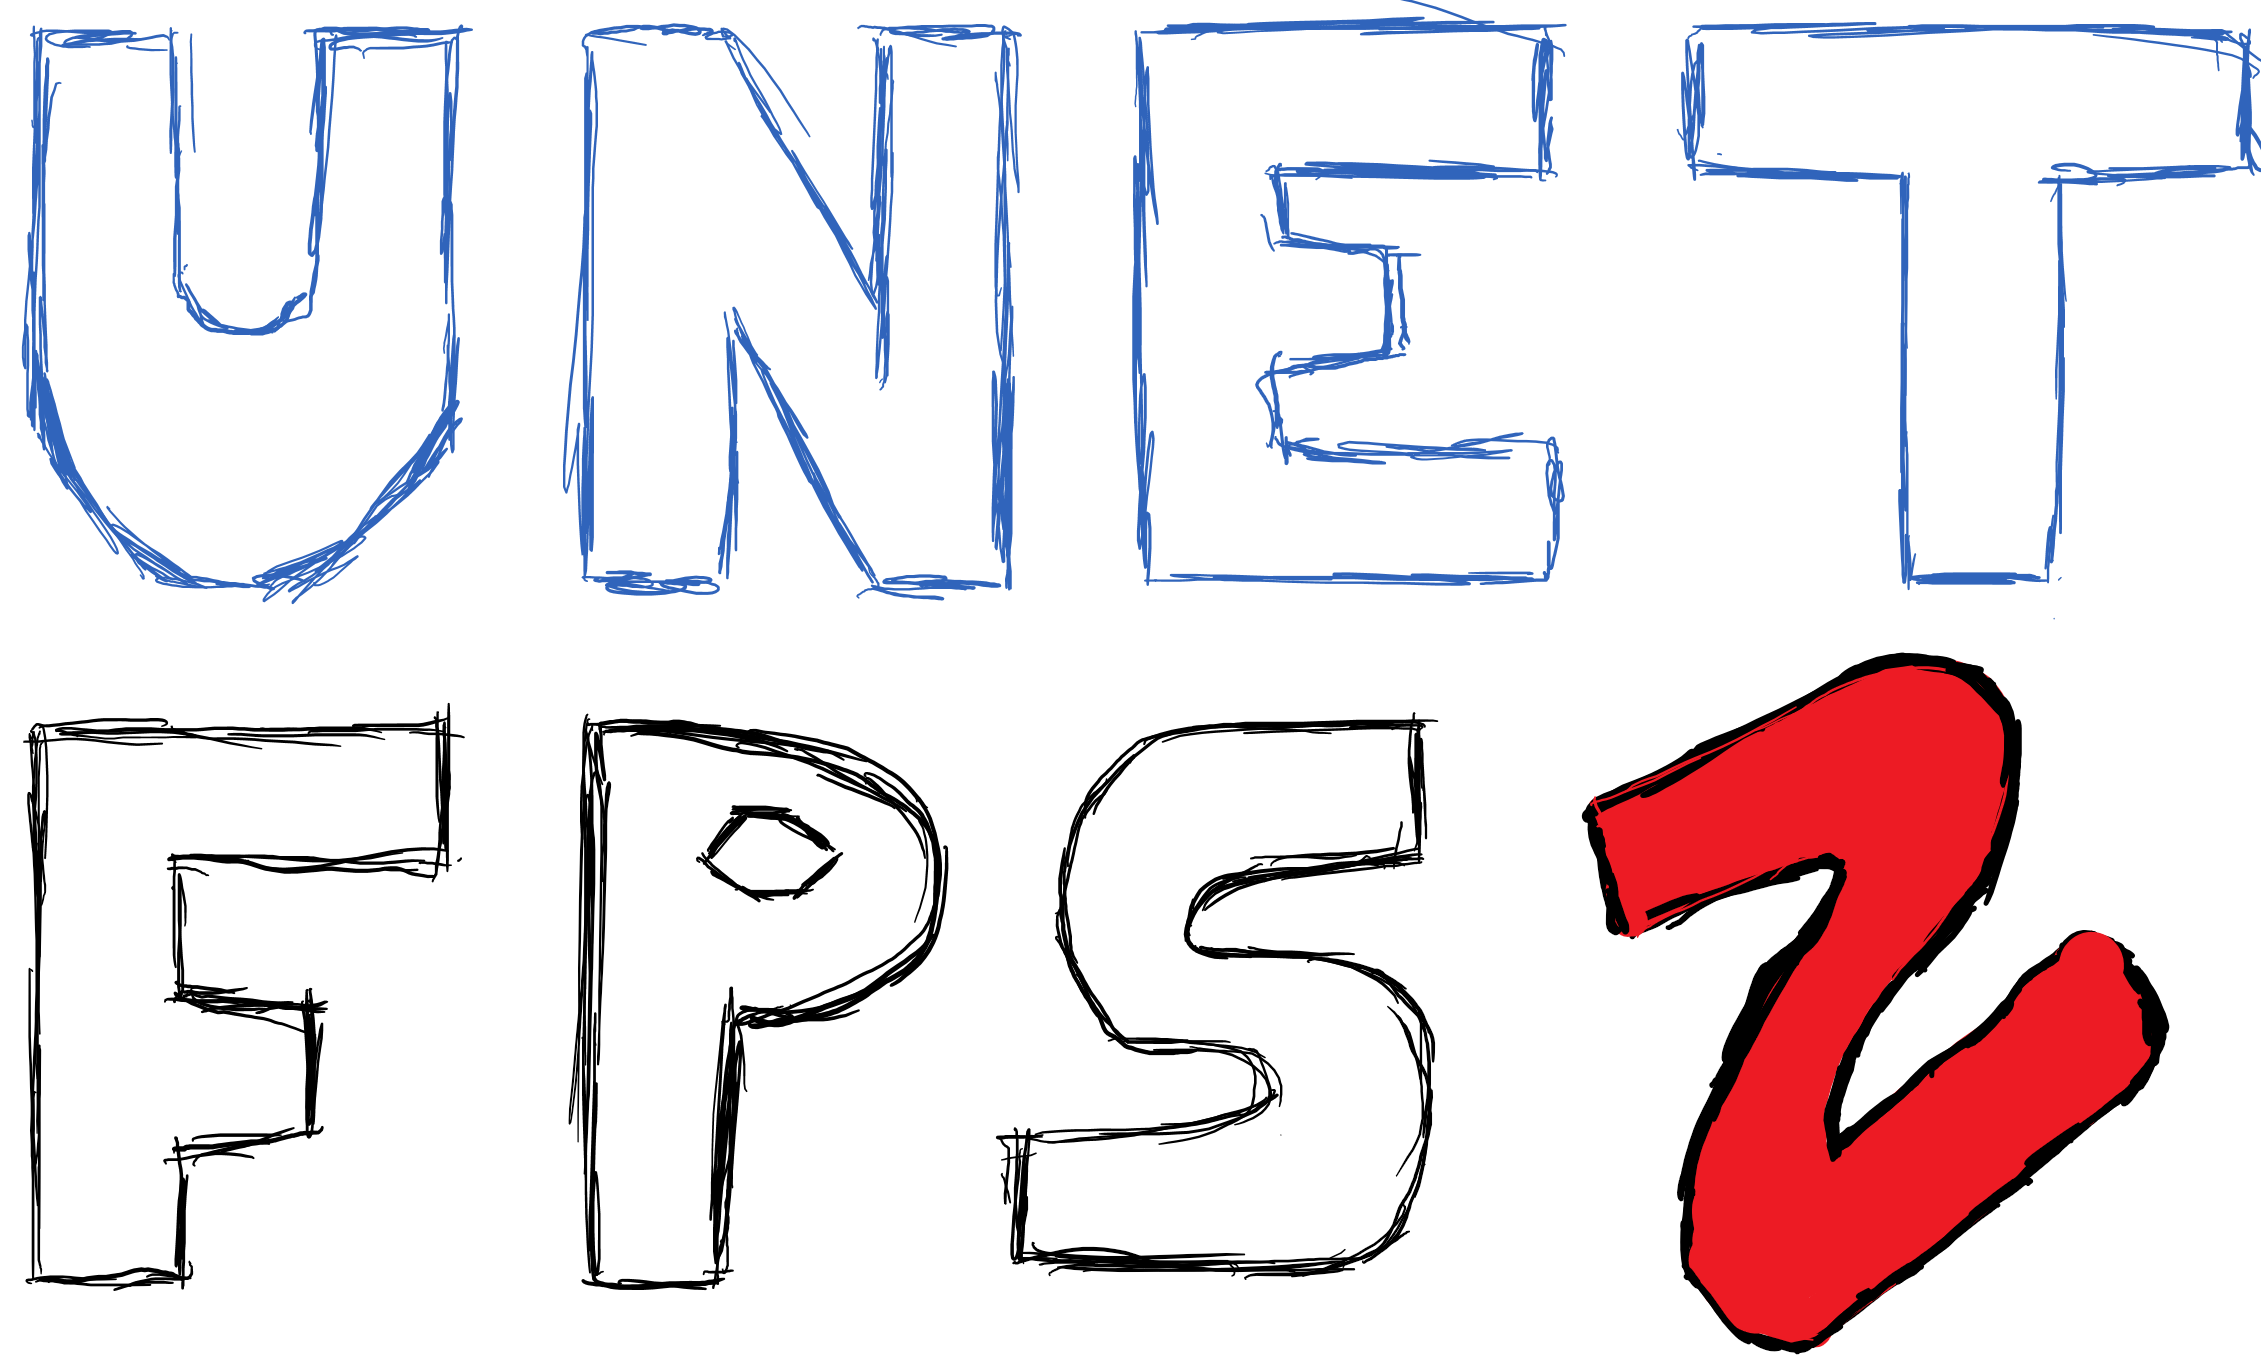 UNET
FPS2